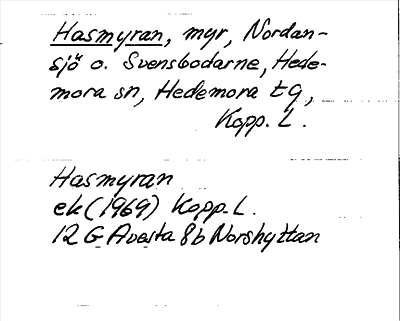 Hasmyran, myr, Nordan-
sjö o. Svensbodarne, Hede-
mora sn, Hedemora tg,
Kopp. L.
Hasmyran
ek (1969) Kopp. L.
12 G Avesta 8b Norshyttan